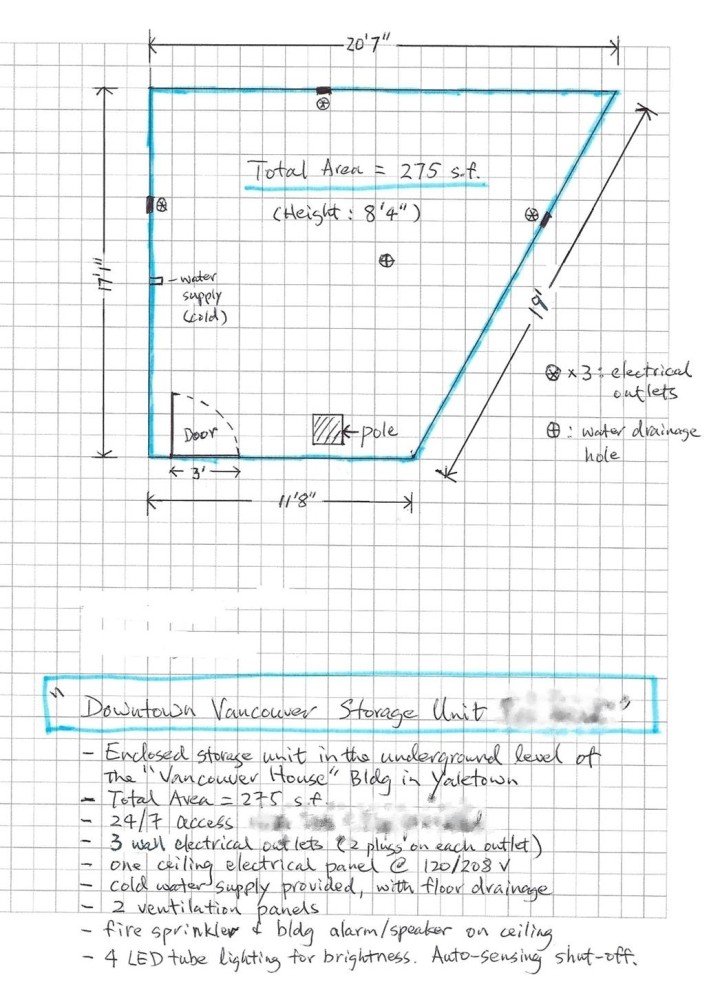 20'7"
Total Area = 275 s.f.
(Height: 8'4")
17'1"
water
supply
(cold)
19'
⊗ x 3 : electrical
outlets
⊕ : water drainage
hole
Door
pole
3'
11'8"
" Downtown Vancouver Storage Unit "
- Enclosed storage unit in the underground level of
the "Vancouver House" Bldg in Yaletown
- Total Area = 275 s.f.
- 24/7 access
- 3 wall electrical outlets (2 plugs on each outlet)
- one ceiling electrical panel @ 120/208 V
- cold water supply provided, with floor drainage
- 2 ventilation panels
- fire sprinkler & bldg alarm/speaker on ceiling
- 4 LED tube lighting for brightness. Auto-sensing shut-off.